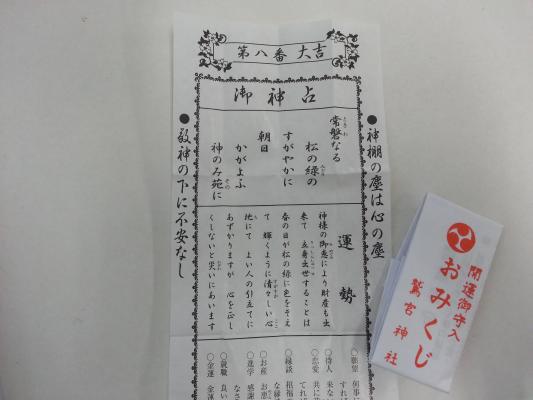 第八番 大吉
御神占
●神棚の塵は心の塵
常磐なる
松の緑の
すがやかに
朝日
かがよふ
神のみ苑に
●敬神の下に不安なし
運勢
神様の御恵により財産も出
来て 立身出世することは
春の日が松の緑に色をそえ
て 輝くように清々しい心
地にて よい人々の引立てに
あずかりますが 心を正し
くしないと災いにあいます
○願望 何事に
すれば
○待人 来な
○恋愛 共に
てれば
○縁談 招福
な縁
○お産 お恵
○進学 感謝
なさ
○就職 良い
○金運 金運
開運御守入
おみくじ
鷲宮神社